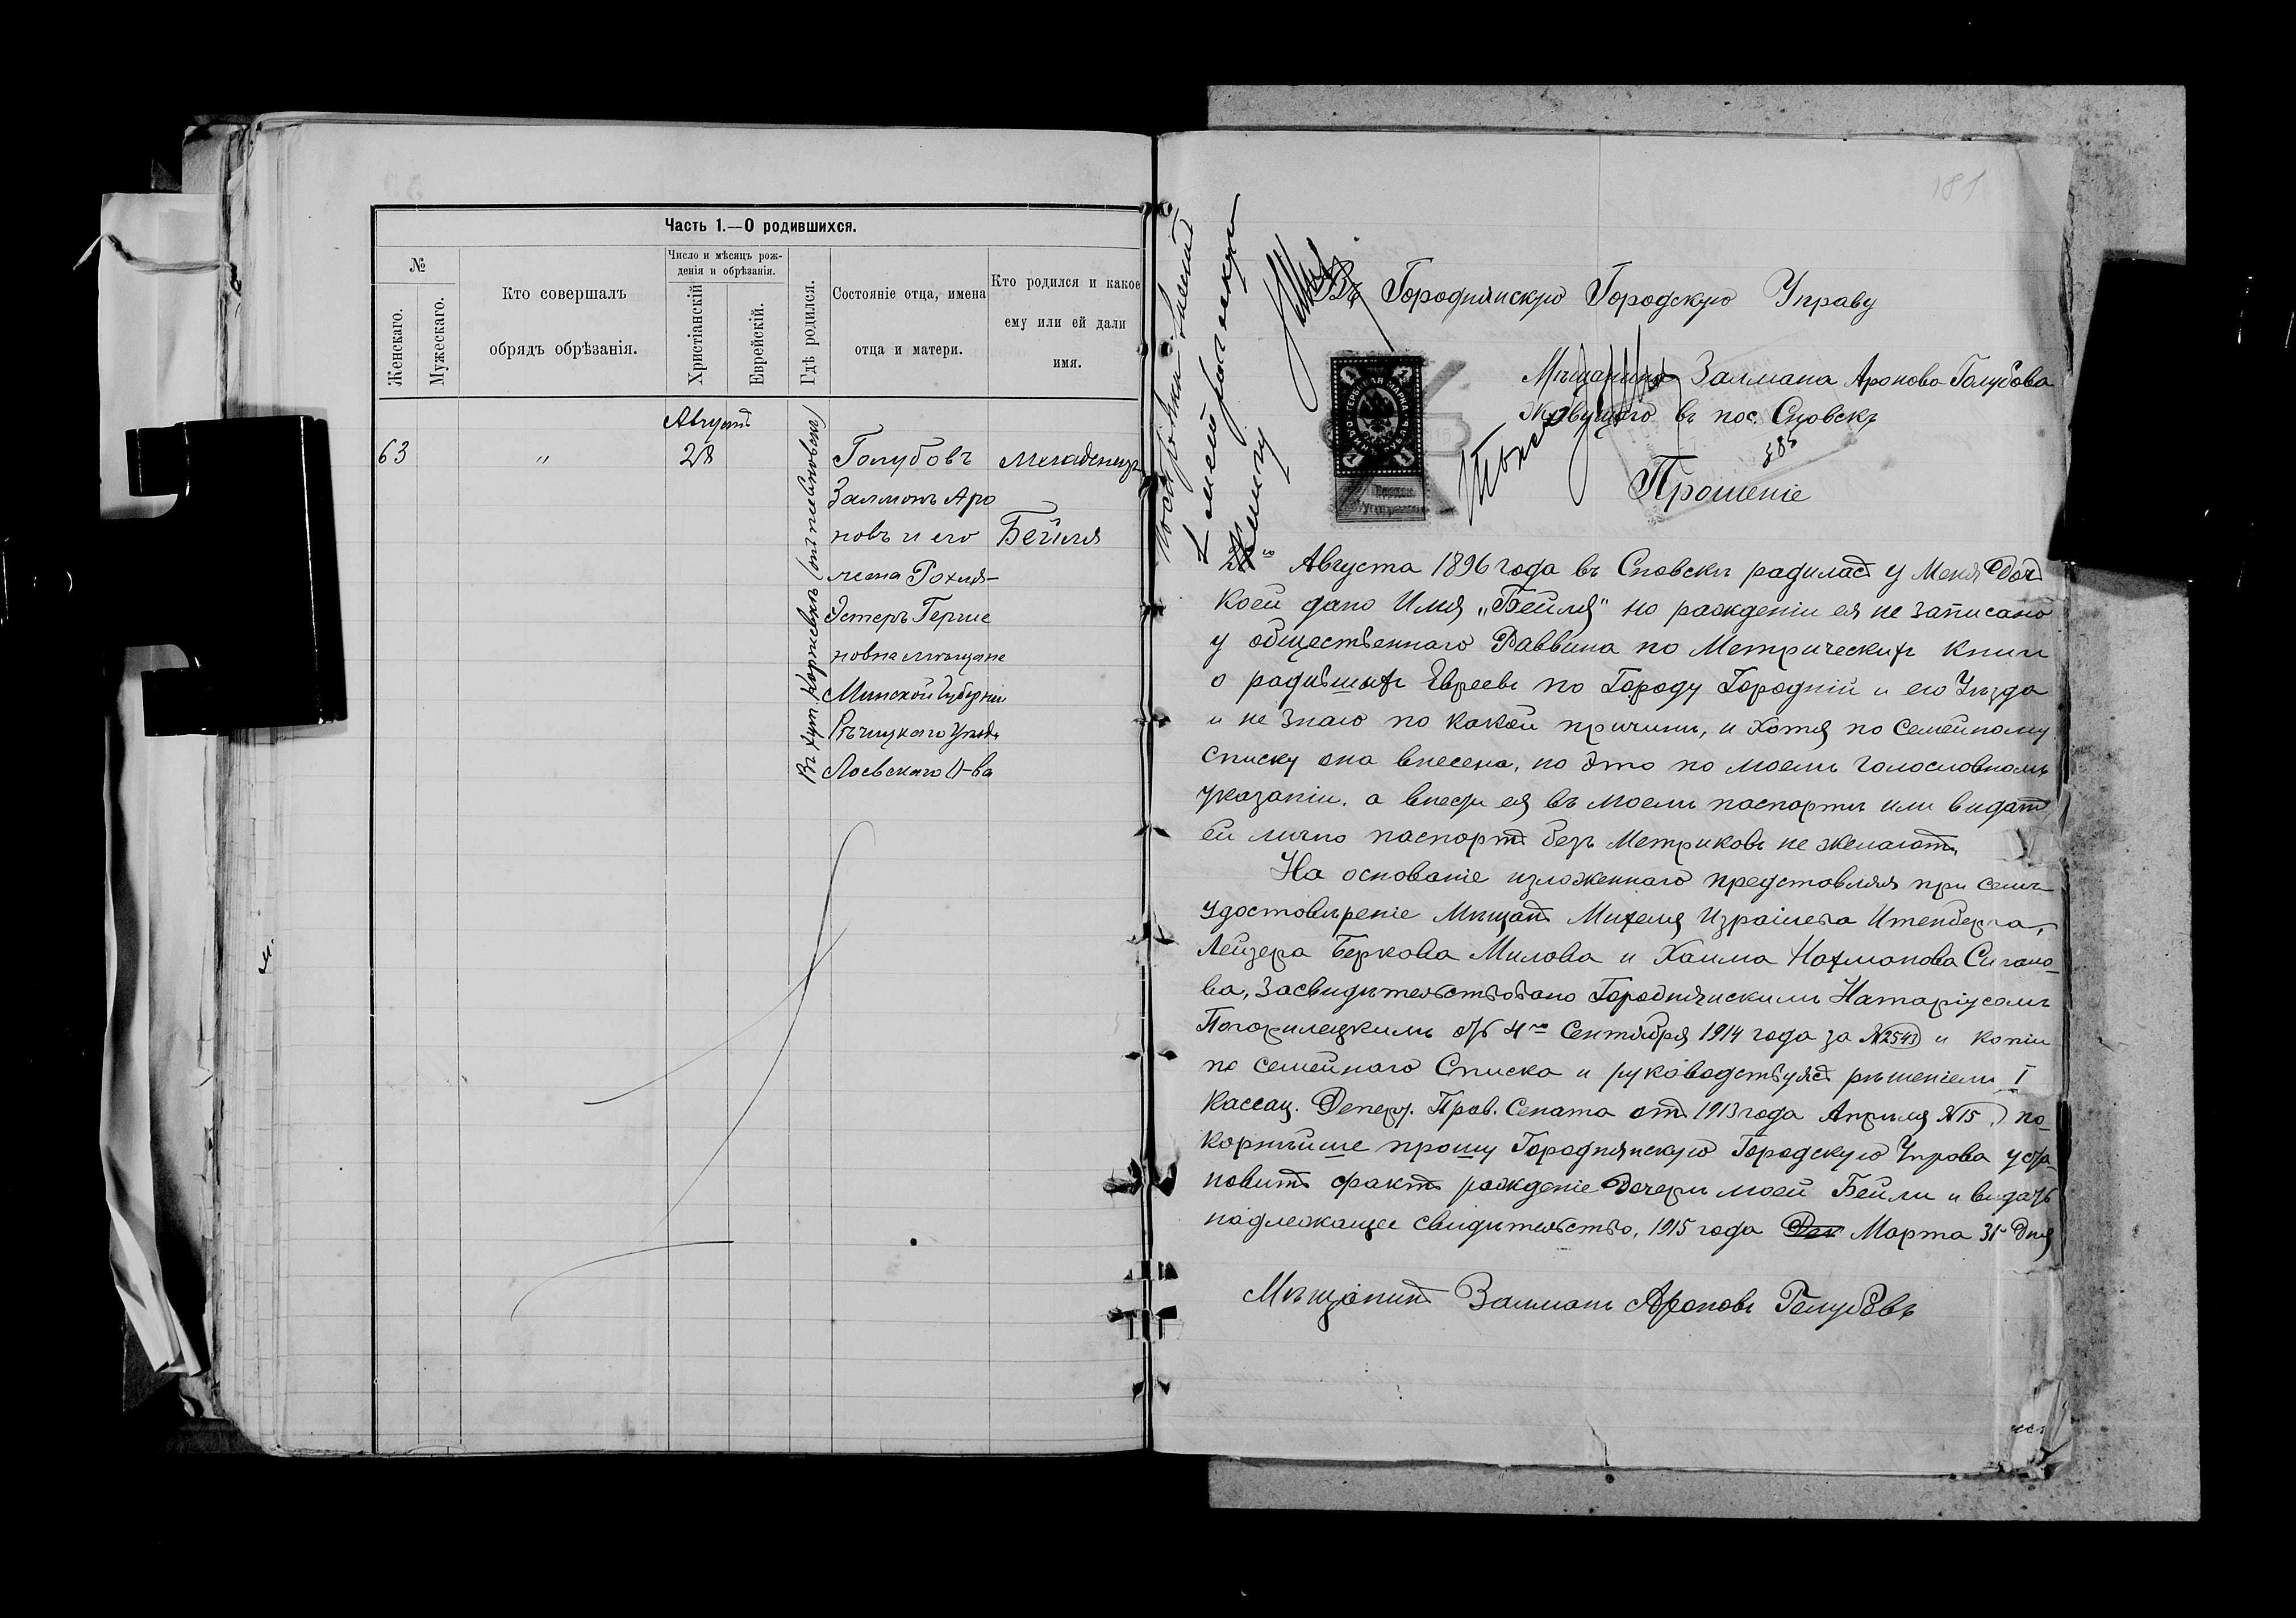 Часть 1.—О родившихся.
№
Женскаго.
Мужескаго.
Кто совершалъ
обрядъ обрѣзанія.
Число и мѣсяцъ рож-
денія и обрѣзанія.
Христіанскій
Еврейскій.
Гдѣ родился.
Состояніе отца, имена
отца и матери.
Кто родился и какое
ему или ей дали
имя.
Августъ
63
"
28
Голубовъ
Залманъ Аро
новъ и его
жена Рохля-
Эстеръ Герше
новна мѣщане
Минской Губерніи
Рѣчицкаго Уѣзда
Лоевскаго О-ва
Младенецъ
Бейля
181
Въ Городнянскую Городскую Управу
Мѣщанина Залмана Аронова Голубова
Живущаго въ пос. Сновскъ
385
Прошеніе
ГЕРБОВАЯ МАРКА
28го Августа 1896 года въ Сновскѣ радилась у Меня Дочь
Коей дано Имя „Бейля" но рожденіи ея не записано
у общественнаго Раввина по Метрическихъ Книги
о радившихъ Евреевъ по Городу Городній и его Уѣзда
и не знаю по какой причины, и Хотя по Семейному
Списку она внесена, но это по моемъ голословномъ
указаніи, а внести ея въ моемъ паспортѣ или видать
ей лично паспортъ безъ Метриковъ не желаютъ.
На основаніе изложеннаго представляя при семъ
удостовѣреніе Мѣщанъ Михеля Израилева Итенберга,
Лейзера Беркова Милова и Хаима Нахманова Сигало-
ва, Засвидѣтельствовано Городнянскимъ Натаріусомъ
отъ 4го Сентября 1914 года за №2543 и копіи
по семейнаго Списка и руководствуясь рѣшеніемъ I
Кассац. Депер. Прав. Сената отъ 1913 года Апрѣля №15, по-
корнѣйше прошу Городнянскую Городскую Управа уста-
новить фактъ рожденіе Дочери моей Бейли и видать
надлежащее свидѣтельство, 1915 года Марта 31го Дня
Мѣщанинъ Залманъ Ароновъ Голубовъ